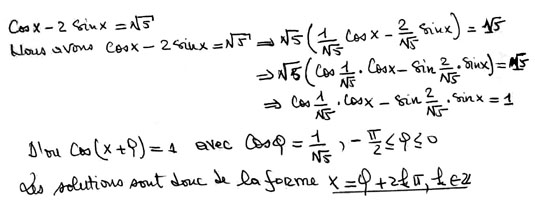 Cosx - 2 sinx = √5
Nous avons Cosx - 2 sinx = √5 ⇒ √5 (1/√5 Cosx - 2/√5 Sinx) = √5
⇒ √5 (Cos 1/√5 . Cosx - Sin 2/√5 . Sinx) = √5
⇒ Cos 1/√5 . Cosx - Sin 2/√5 . Sinx = 1
D'où Cos(x + φ) = 1 avec Cosφ = 1/√5, -π/2 ≤ φ ≤ 0
Les solutions sont donc de la forme x = φ + 2kπ, k ∈ ℤ